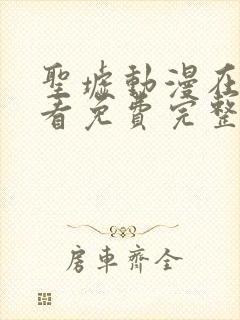 聖墟動漫在
看免費完整
房車齊全